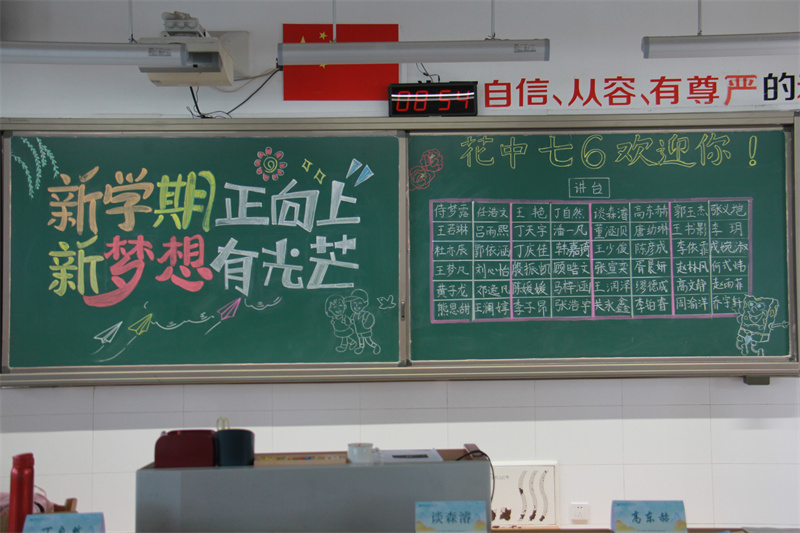 自信、从容、有尊严的
08:54
新学期 正向上
新梦想 有光芒
花中七6欢迎你!
讲台
侍梦露 任浩文 王艳 丁自然 谈森濬 高东喆 郭玉杰 张义垲
王若琳 吕雨熙 丁天宇 潘一凡 董涵贝 唐幼琳 王书影 李玥
杜亦辰 郭依涵 丁庆佳 韩嘉琦 王少俊 陈彦成 李依霏 戎婉淑
王梦凡 刘心怡 殷振凯 顾晗文 张萱芙 胥晨妍 赵林风 何弍炜
黄子龙 邓逸凡 陈媛媛 马梓涵 王润泽 缪德成 高文静 赵雨菲
熊思甜 王澜婷 李子昂 张浩宇 关永鑫 李铂睿 周渝洋 乔宇轩
丁自然
谈森濬
高东喆